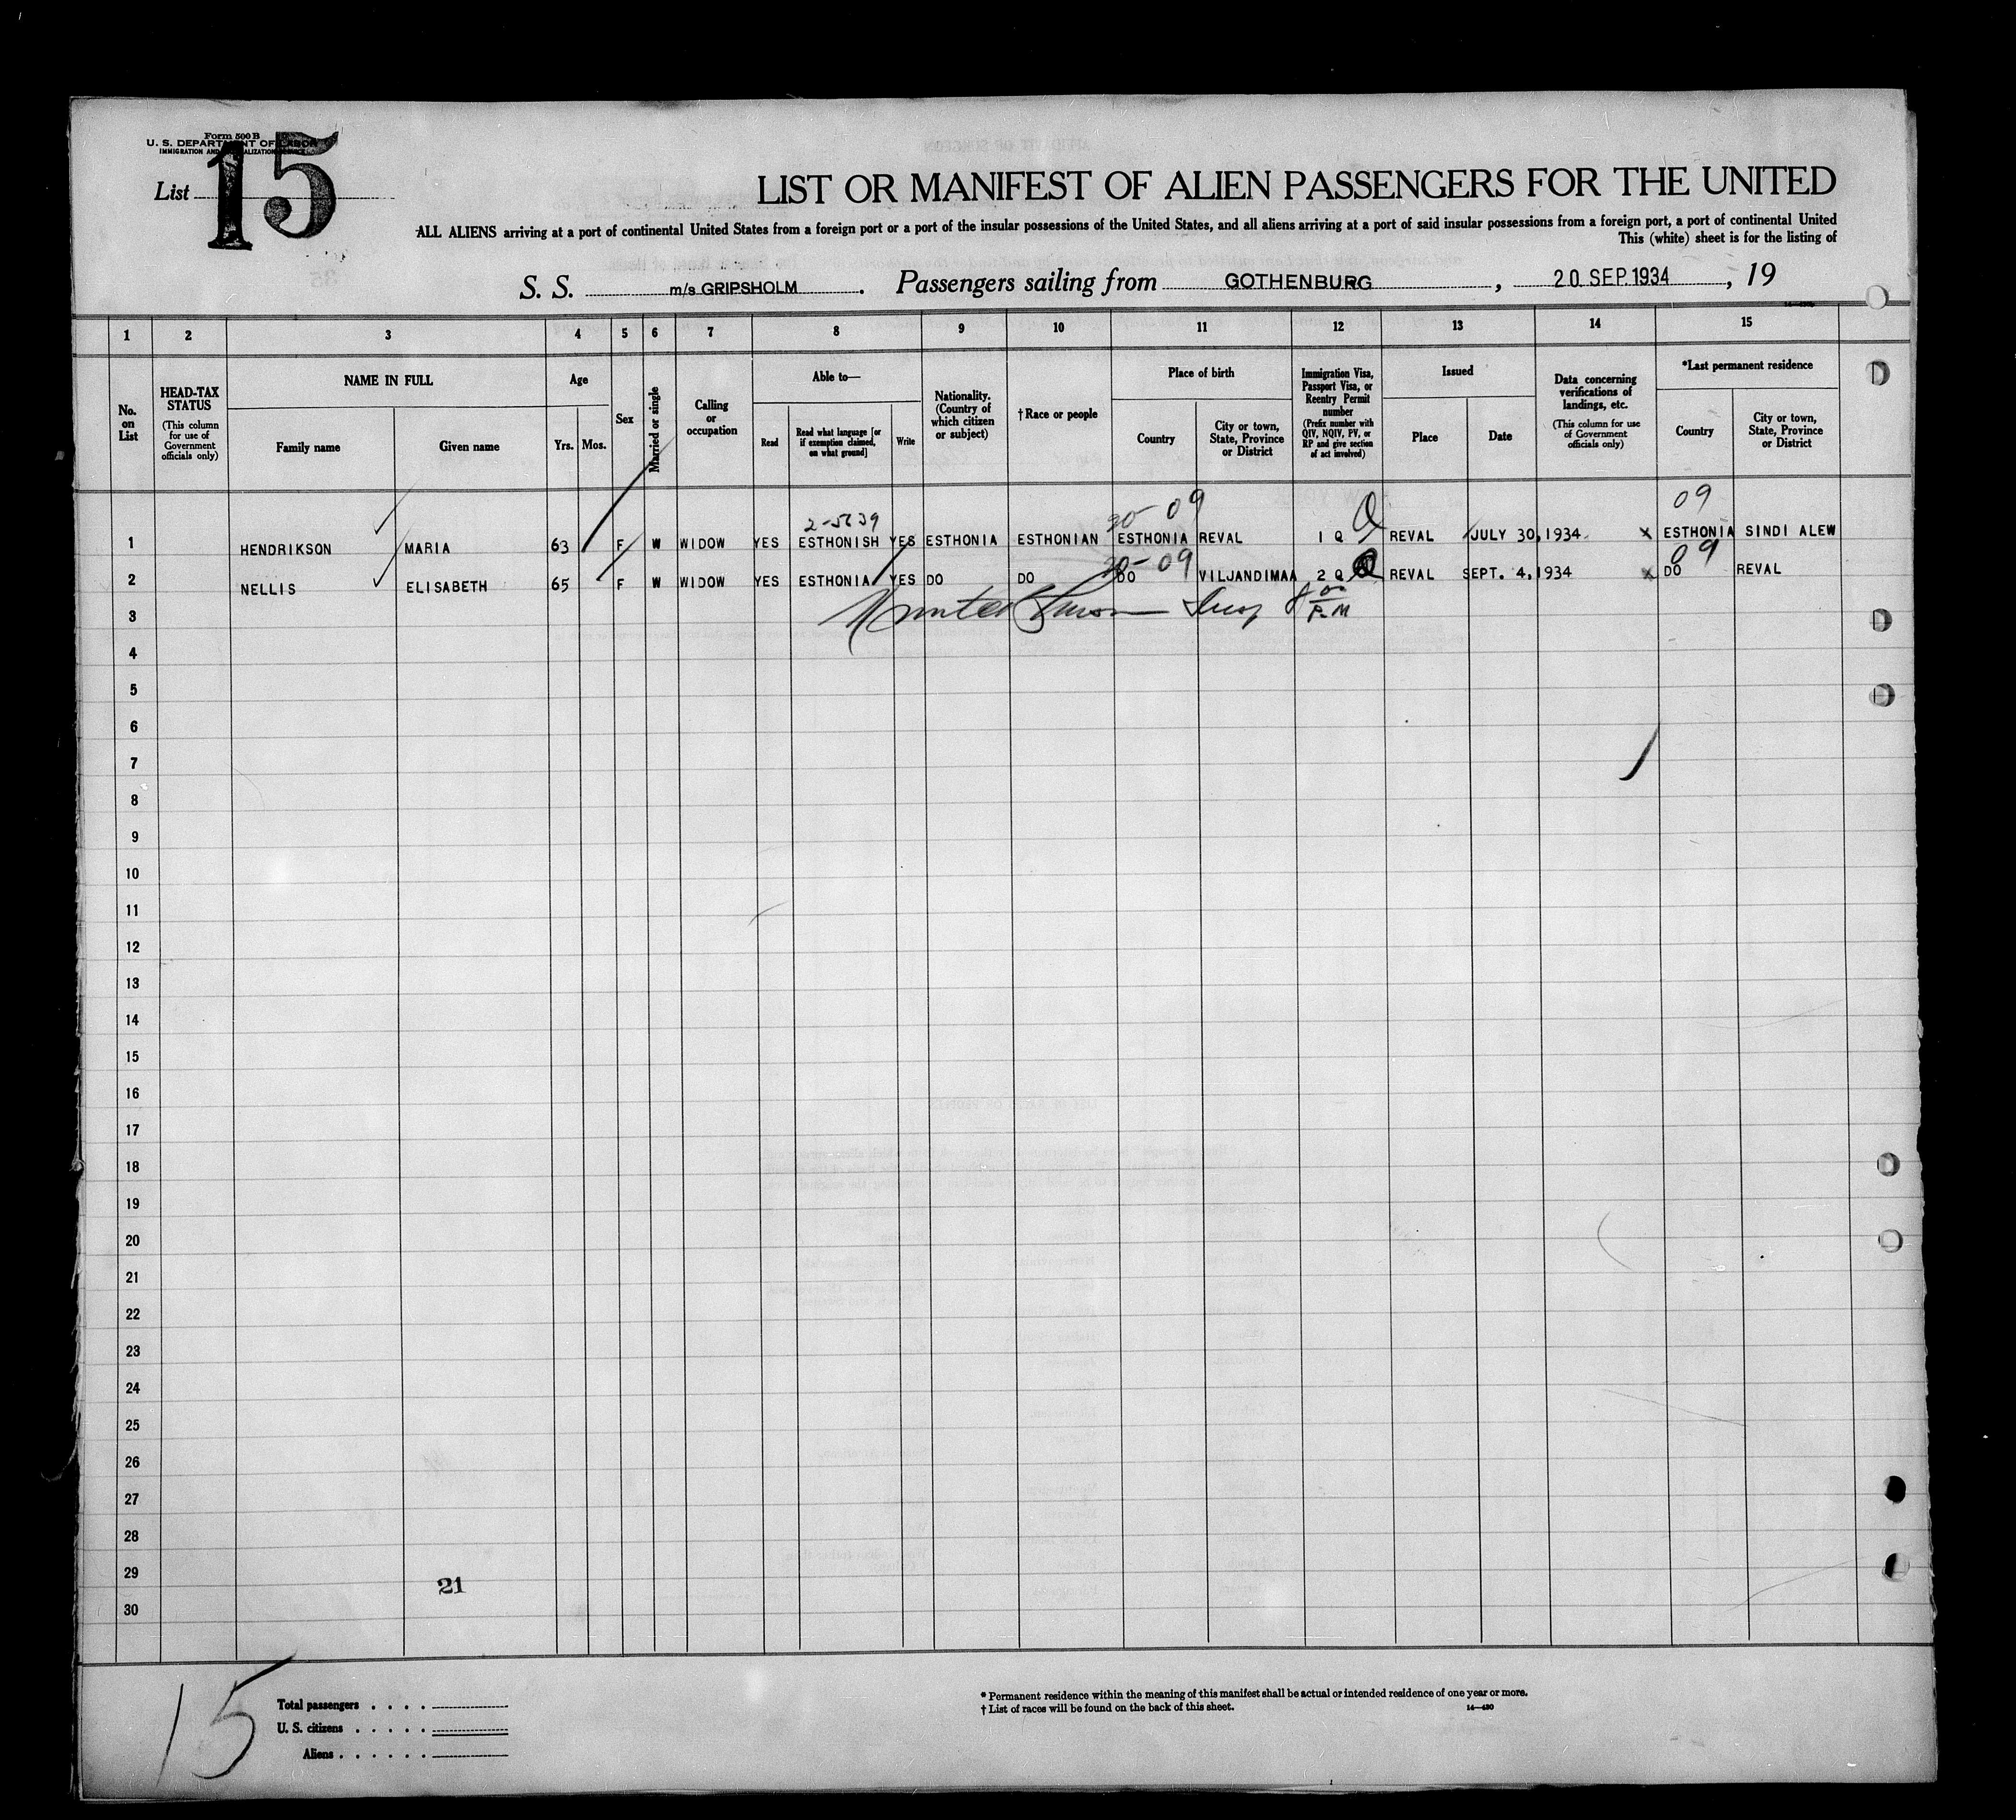 Form 500 B
U. S. DEPARTMENT OF LABOR
IMMIGRATION AND NATURALIZATION SERVICE
List 15
LIST OR MANIFEST OF ALIEN PASSENGERS FOR THE UNITED
ALL ALIENS arriving at a port of continental United States from a foreign port or a port of the insular possessions of the United States, and all aliens arriving at a port of said insular possessions from a foreign port, a port of continental United
This (white) sheet is for the listing of
S. S. m/s GRIPSHOLM. Passengers sailing from GOTHENBURG, 20 SEP. 1934, 19
1 2 3 4 5 6 7 8 9 10 11 12 13 14 15
No. on List
HEAD-TAX STATUS (This column for use of Government officials only)
NAME IN FULL
Family name
Given name
Age
Yrs. Mos.
Sex
Married or single
Calling or occupation
Able to—
Read
Read what language [or if exemption claimed, on what ground]
Write
Nationality. (Country of which citizen or subject)
† Race or people
Place of birth
Country
City or town, State, Province or District
Immigration Visa, Passport Visa, or Reentry Permit number (Prefix number with QIV, NQIV, PV, or RP and give section of act involved)
Issued
Place
Date
Data concerning verifications of landings, etc. (This column for use of Government officials only)
*Last permanent residence
Country
City or town, State, Province or District
2-5639 30-09 09
1 HENDRIKSON MARIA 63 F W WIDOW YES ESTHONISH YES ESTHONIA ESTHONIAN ESTHONIA REVAL 1 Q REVAL JULY 30, 1934 x ESTHONIA SINDI ALEW
30-09 09
2 NELLIS ELISABETH 65 F W WIDOW YES ESTHONIA YES DO DO DO VILJANDIMAA 2 Q REVAL SEPT. 4, 1934 x DO REVAL
3 P.M
4
5
6
7
8
9
10
11
12
13
14
15
16
17
18
19
20
21
22
23
24
25
26
27
28
29 21
30
15
Total passengers . . . .
U. S. citizens . . . . .
Aliens . . . . . .
* Permanent residence within the meaning of this manifest shall be actual or intended residence of one year or more.
† List of races will be found on the back of this sheet.
14—430